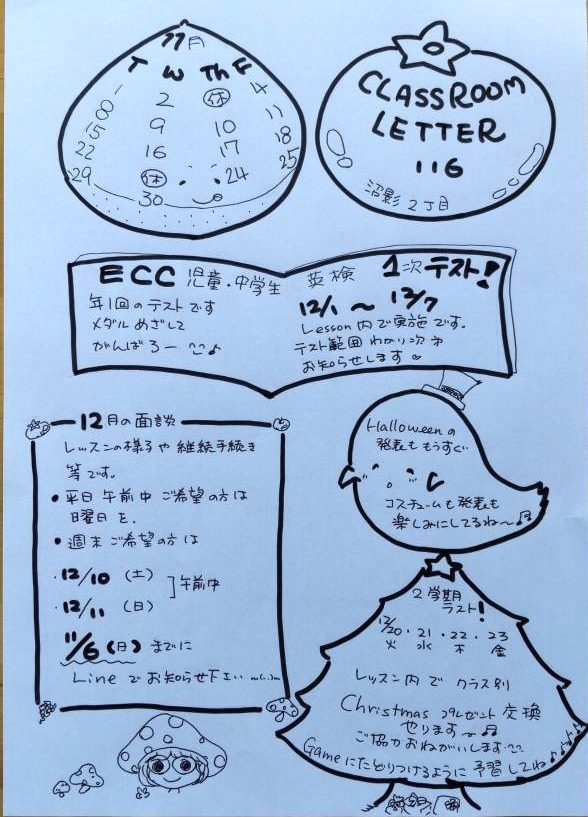 11月
T W Th F
1 2 休 4
8 9 10 11
15 16 17 18
22 休 24 25
29 30
CLASSROOM
LETTER
116
沼影2丁目
ECC 児童・中学生 英検 1次テスト!
年1回のテストです
メダルめざして
がんばろー♪
12/1 〜 12/7
Lesson内で実施です。
テスト範囲わかり次オ
お知らせします
12月の面談
レッスンの様子や継続手続き
等です。
• 平日午前中ご希望の方は
日曜日を.
• 週末ご希望の方は
・12/10(土)
・12/11(日)
]午前中
11/6(日)までに
Lineでお知らせ下さいm(..)m
Halloweenの
発表ももうすぐ
コスチュームも発表も
楽しみにしてるね〜♫
2学期
ラスト!
12/20・21・22・23
火 水 木 金
レッスン内でクラス別
Christmas プレゼント交換
やります〜♫
ご協力おねがいします
Gameにたどりつけるように予習してね♪♪♪♪